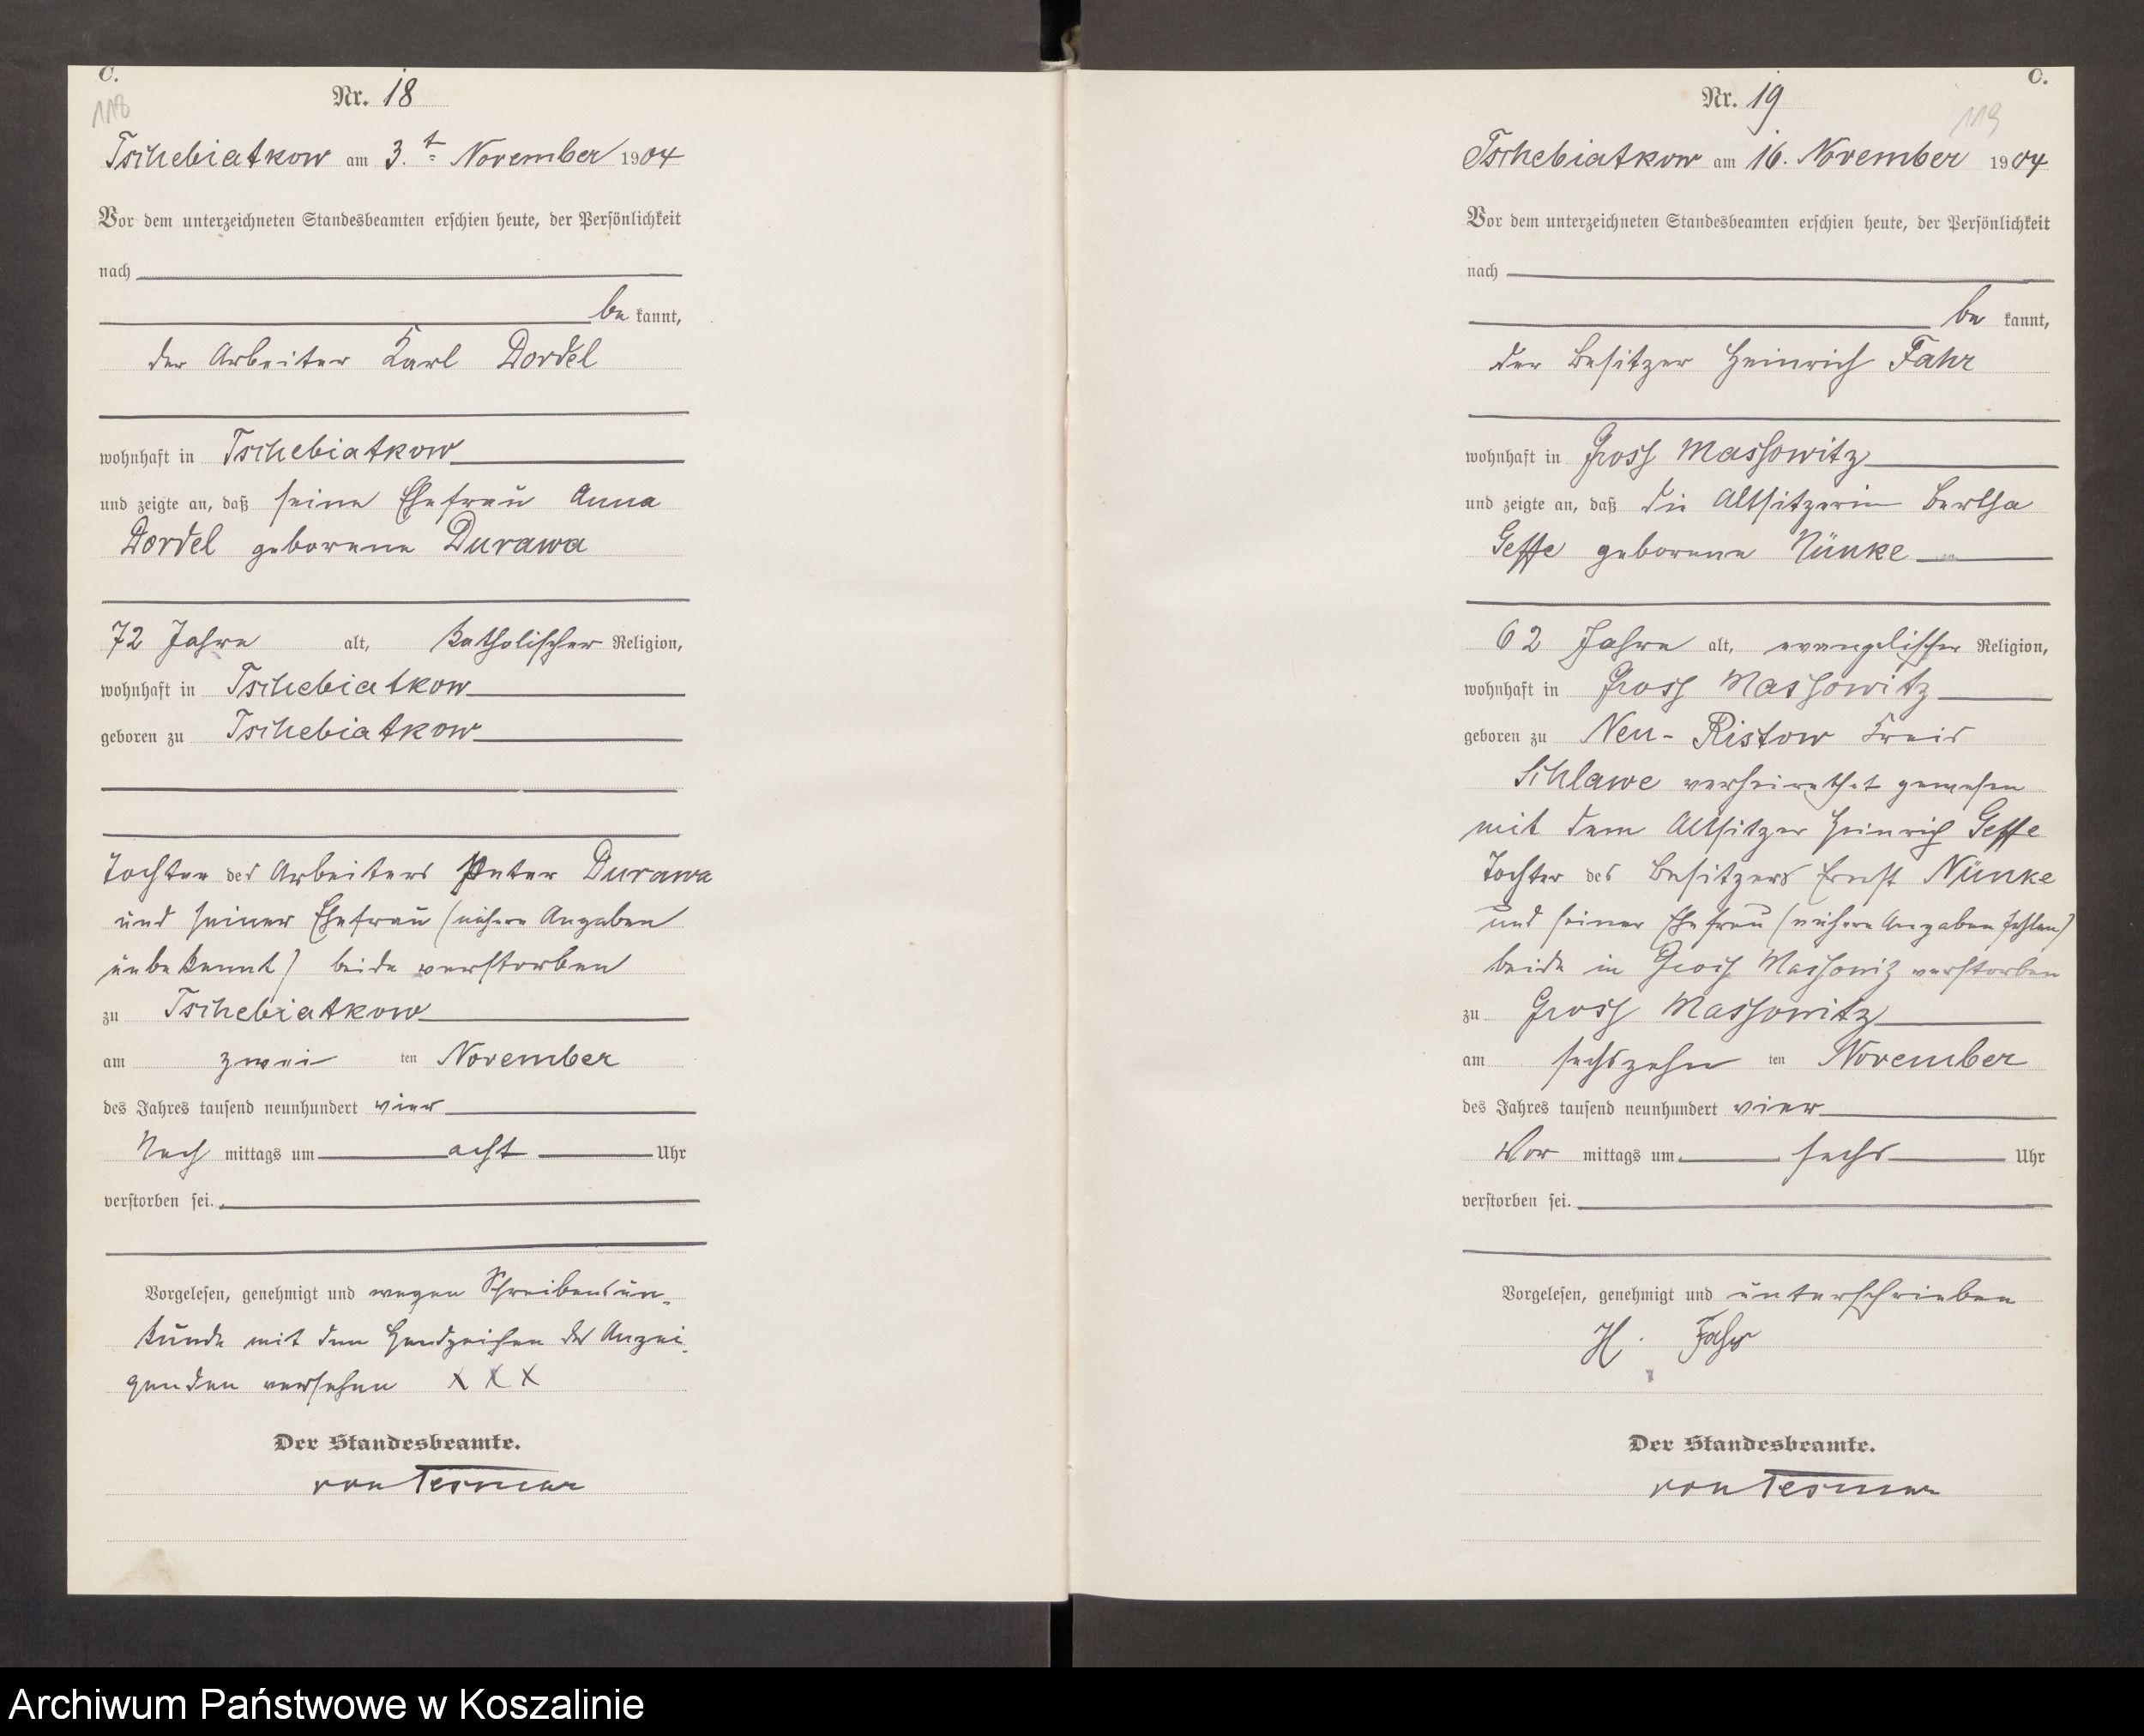 C.
118
Nr. 18
Tschebiatkow am 3.t November 1904
Vor dem unterzeichneten Standesbeamten erschien heute, der Persönlichkeit
nach
be kannt,
der Arbeiter Karl Dordel
wohnhaft in Tschebiatkow
und zeigte an, daß seine Ehefrau Anna
Dordel geborene Durawa
72 Jahre alt, katholischer Religion,
wohnhaft in Tschebiatkow
geboren zu Tschebiatkow
Tochter des Arbeiters Peter Durawa
und seiner Ehefrau (nähere Angaben
unbekannt) beide verstorben
zu Tschebiatkow
am zwei ten November
des Jahres tausend neunhundert vier
Nach mittags um acht Uhr
verstorben sei.
Vorgelesen, genehmigt und wegen Schreibensun-
kunde mit dem Handzeichen des Anzei-
genden versehen X X X
Der Standesbeamte.
von Tesmar
C.
119
Nr. 19
Tschebiatkow am 16. November 1904
Vor dem unterzeichneten Standesbeamten erschien heute, der Persönlichkeit
nach
be kannt,
der Besitzer Heinrich Fahr
wohnhaft in Gross Massowitz
und zeigte an, daß die Altsitzerin Bertha
Geffe geborene Nünke
62 Jahre alt, evangelischer Religion,
wohnhaft in Gross Massowitz
geboren zu Neu-Ristow Kreis
Schlawe verheirathet gewesen
mit dem Altsitzer Heinrich Geffe
Tochter des Besitzers Ernst Nünke
und seiner Ehefrau (nähere Angaben fehlen)
beide in Gross Massowitz verstorben
zu Gross Massowitz
am sechszehn ten November
des Jahres tausend neunhundert vier
Vor mittags um sechs Uhr
verstorben sei.
Vorgelesen, genehmigt und unterschrieben
H. Fahr
Der Standesbeamte.
von Tesmar
Archiwum Państwowe w Koszalinie